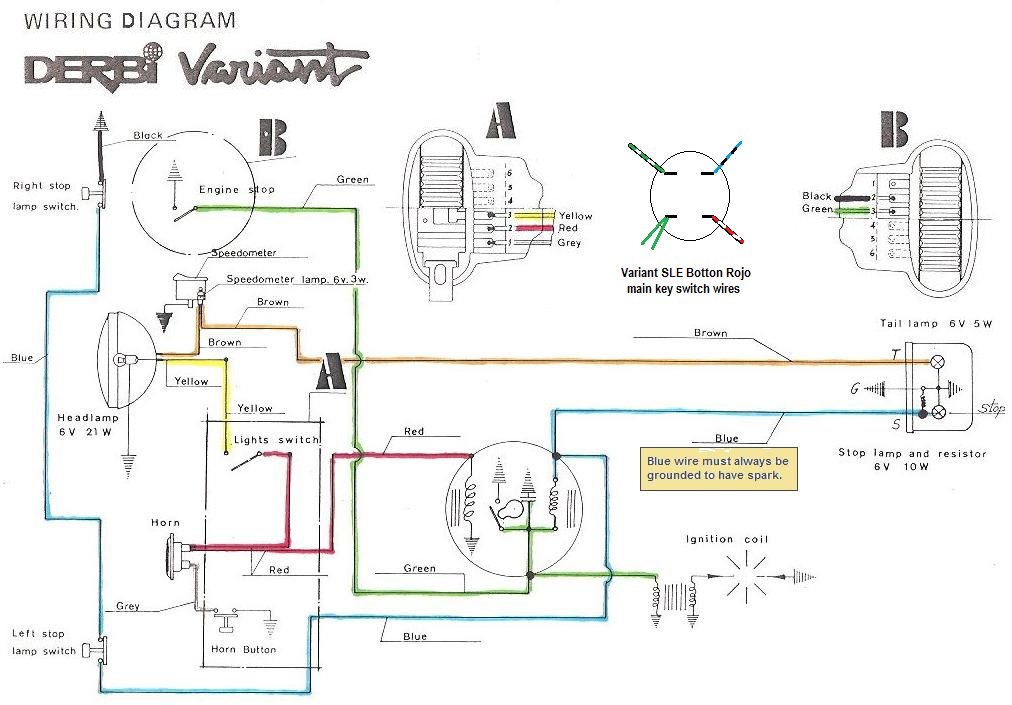 WIRING DIAGRAM
DERBi Variant
Black
B
A
B
Right stop
lamp switch.
Engine stop
Green
6
5
4
3
2
1
Yellow
Red
Grey
Variant SLE Botton Rojo
main key switch wires
Black
Green
1
2
3
4
5
6
Speedometer
Speedometer lamp. 6v.3w.
Brown
Brown
Brown
Tail lamp 6V 5W
Blue
Yellow
A
T
G
S
Stop
Headlamp
6V 21W
Yellow
Lights switch
Red
Blue
Blue wire must always be
grounded to have spark.
Stop lamp and resistor
6V 10W
Horn
Red
Green
Ignition coil
Grey
Left stop
lamp switch
Horn Button
Blue